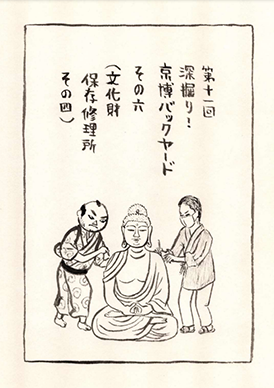 第十一回
深掘り!
京博バックヤード
その六
(文化財
保存修理所
その四)